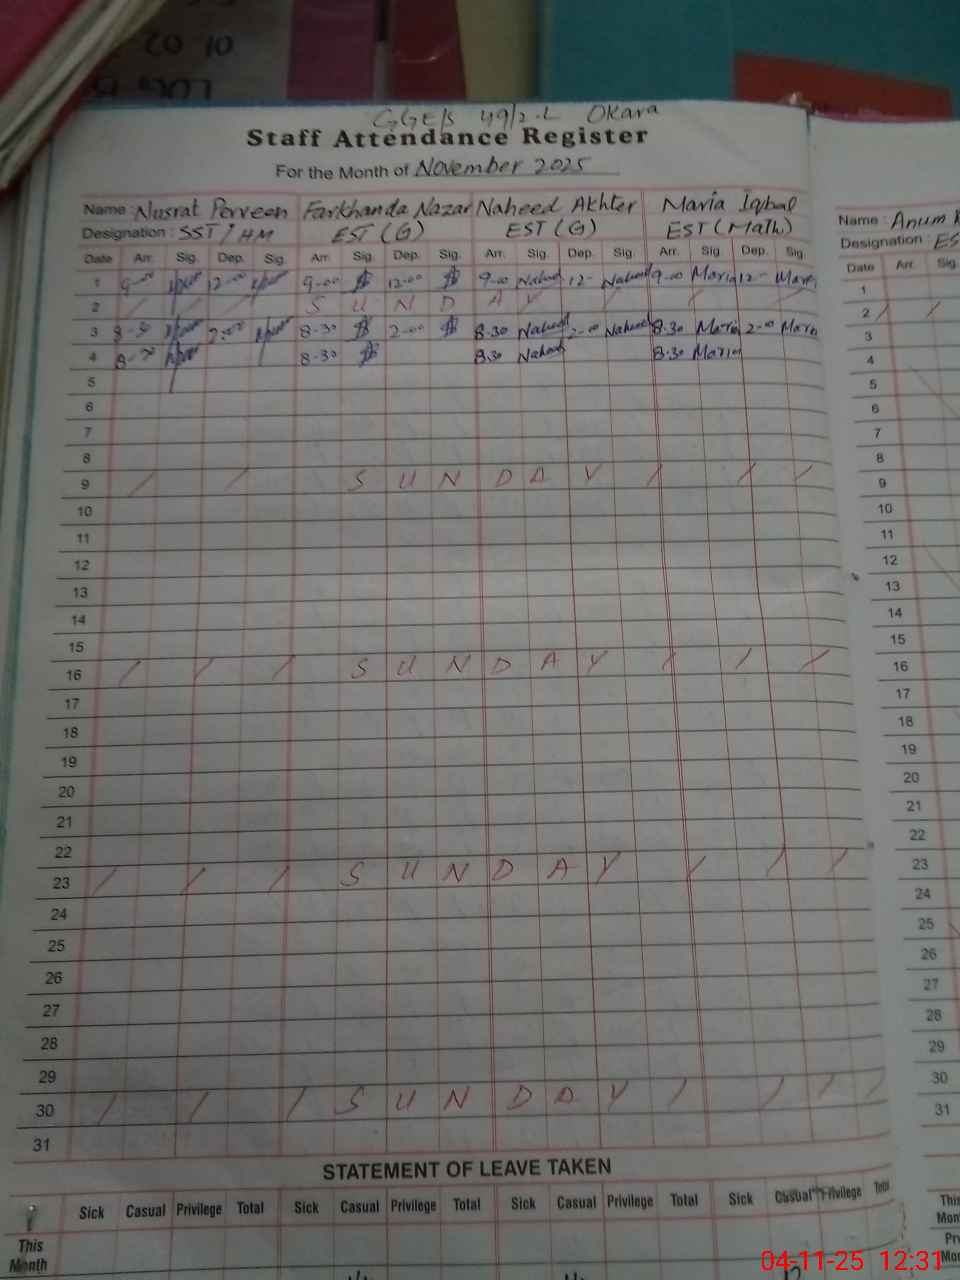 GGE/S 49/2-L Okara
Staff Attendance Register
For the Month of November 2025
Name : Nusrat Perveen Farkhanda Nazar Naheed Akhter Maria Iqbal
Designation : SST / HM EST (G) EST (G) EST (Math)
Date Arr. Sig. Dep. Sig. Arr. Sig. Dep. Sig. Arr. Sig. Dep. Sig. Arr. Sig. Dep. Sig.
1 9-00 12-00 9-00 12-00 9-00 Naheed 12- Naheed 9-00 Maria 12- Maria
2 S U N D A Y
3 8-30 2-00 8-30 2-00 8-30 Naheed 2-00 Naheed 8-30 Maria 2-00 Maria
4 8-30 8-30 8-30 Naheed 8-30 Maria
5
6
7
8
9 S U N D A Y
10
11
12
13
14
15
16 S U N D A Y
17
18
19
20
21
22
23 S U N D A Y
24
25
26
27
28
29
30 S U N D A Y
31
STATEMENT OF LEAVE TAKEN
Sick Casual Privilege Total Sick Casual Privilege Total Sick Casual Privilege Total Sick Casual Privilege Total
This
Month
Name : Anum
Designation : ES
Date Arr. Sig.
1
2
3
4
5
6
7
8
9
10
11
12
13
14
15
16
17
18
19
20
21
22
23
24
25
26
27
28
29
30
31
04-11-25 12:31